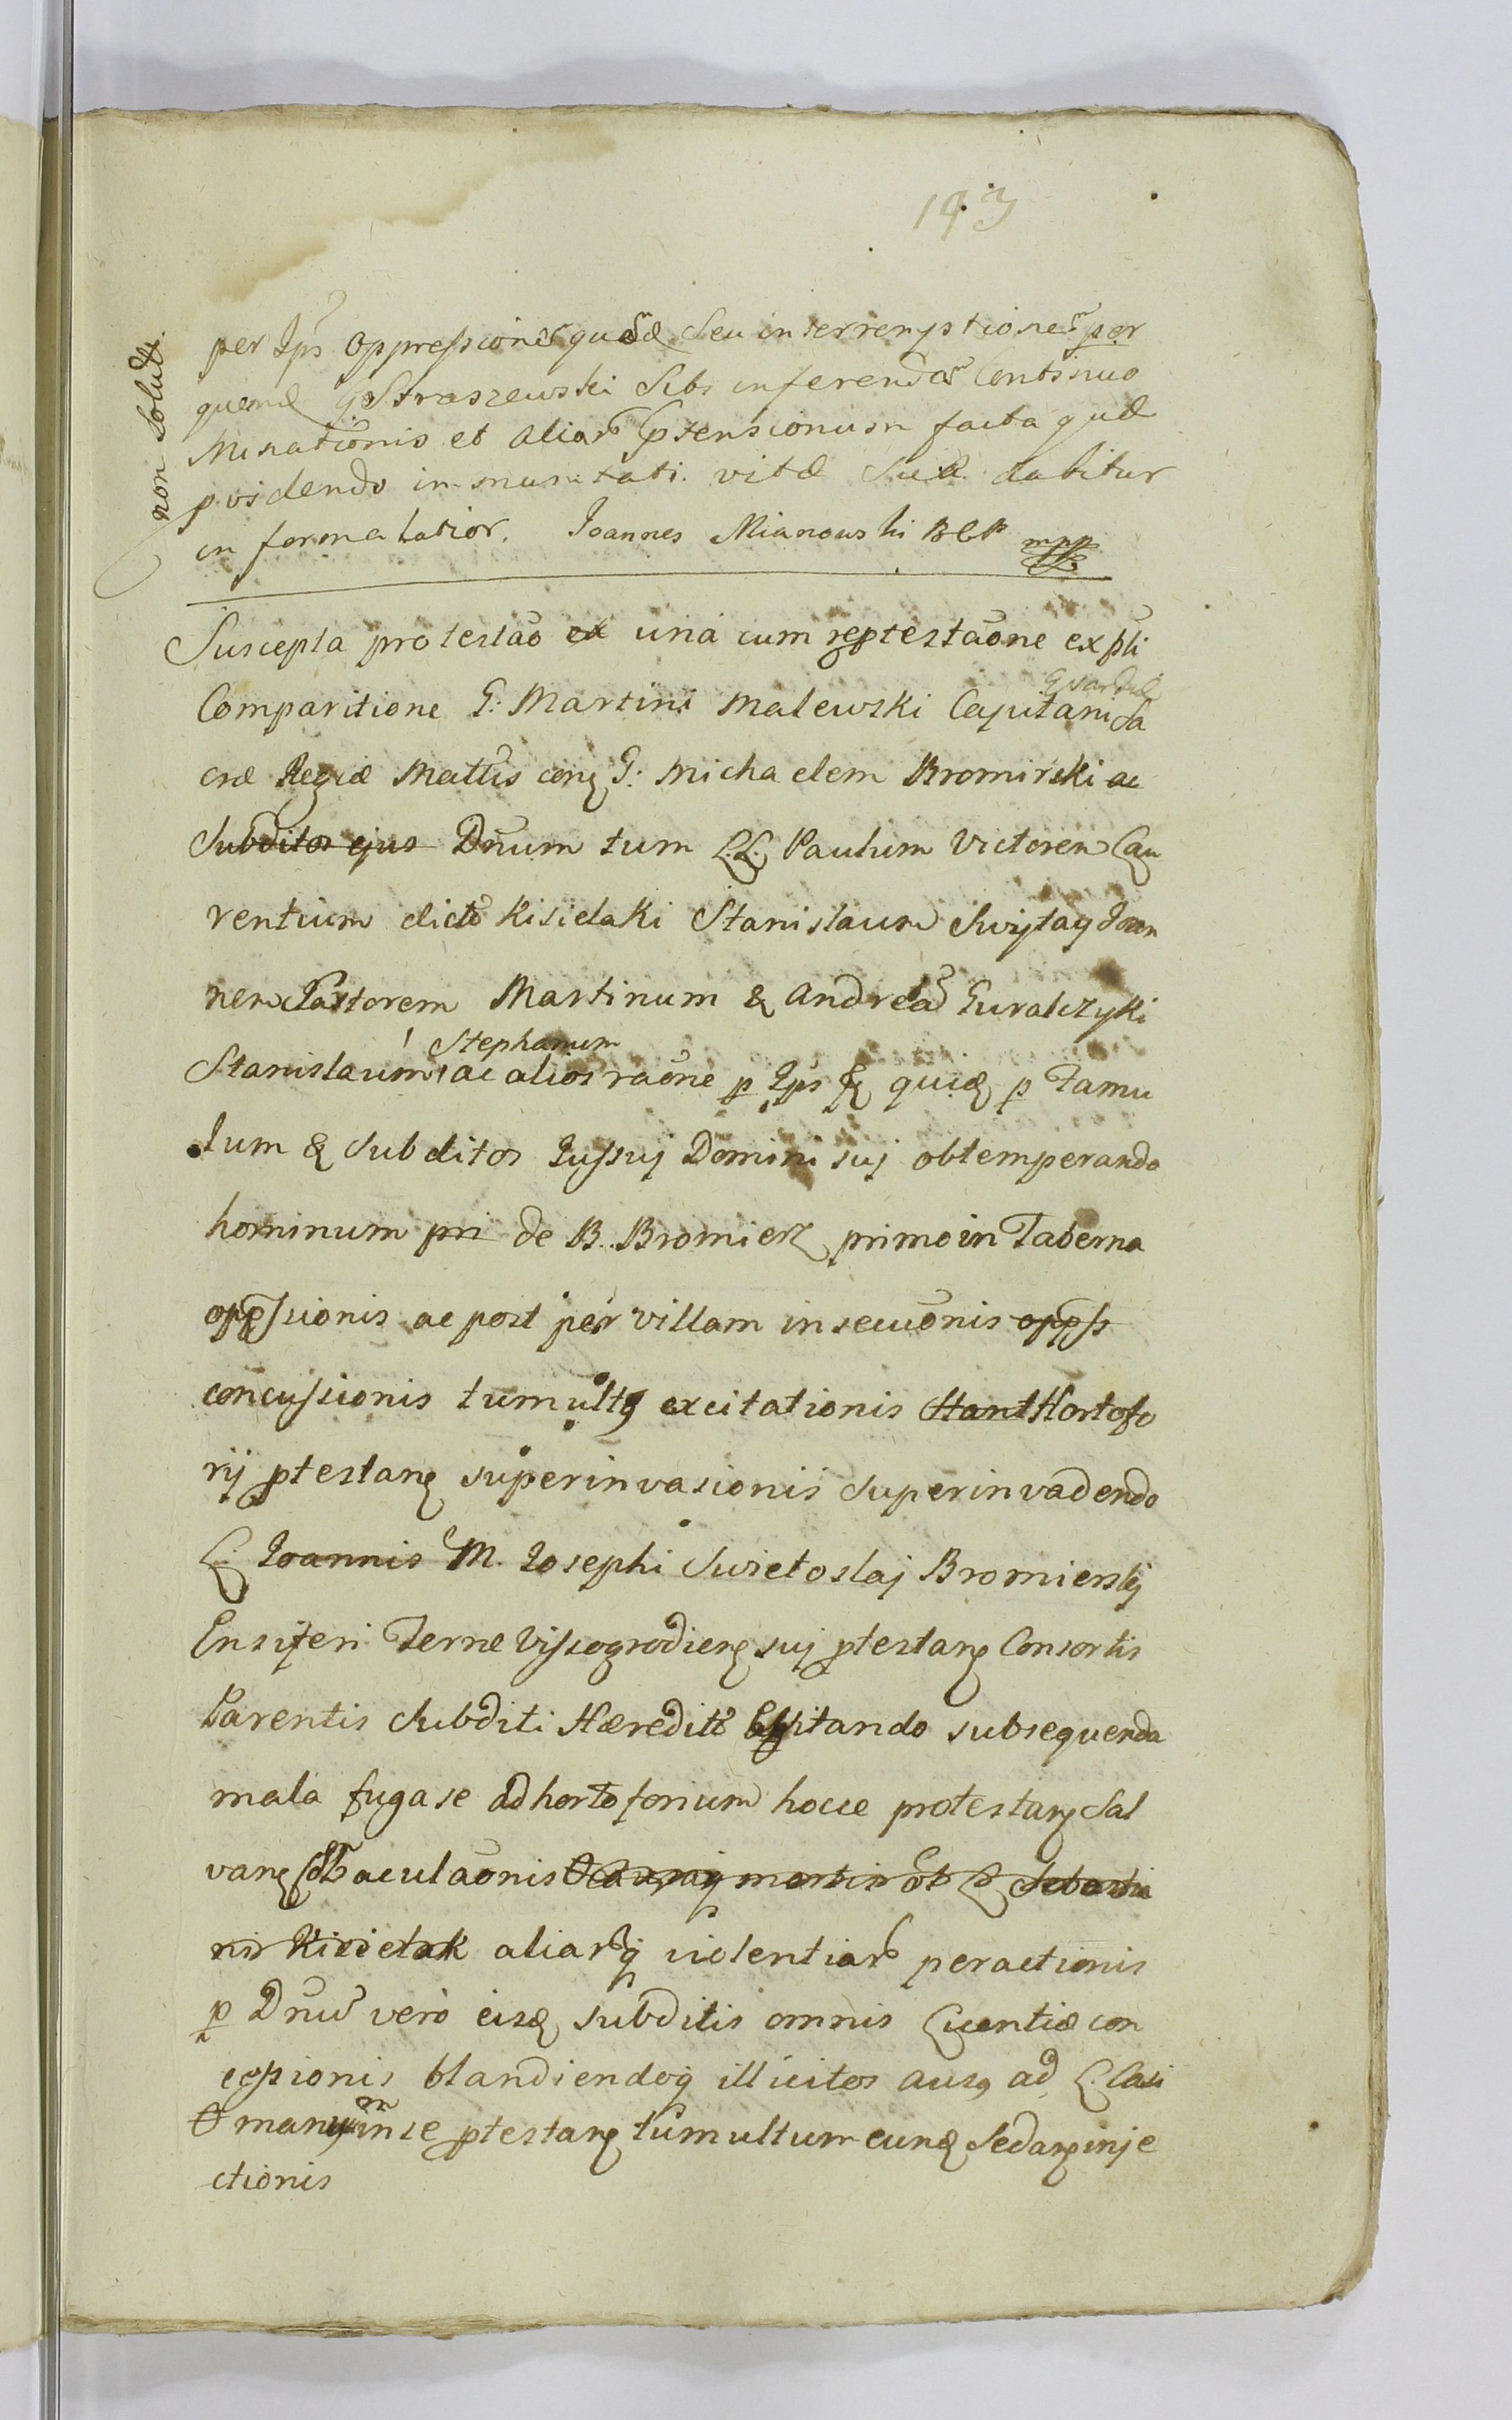 143
non soluti.
per Ips oppressiones quæ seu interremptiones per
quemd G Straszewski sibi inferendas Continuo
Minationis et aliar ptensionum facta quæ
pvidendo immunitati vitæ suæ dabitur
in forma latior. Joannes Mianowski BCP mpp
Suscepta protestao ex una cum reptestaone ex psli
Comparitione G: Martini Malewski Capitani Sa
Gvardiæ
cræ Regiæ Mattis con G: Michaelem Bromirski ac
subditos ejus Dnum tum L.L. Paulum Victorem Lau
rentium dictos Kisielaki Stanislaum Swijtay Joan
nem Pastorem Martinum & Andrea Guralczyki
Stephanum
Stanislaum ac alios raone p Ips & quid p Famu
lum & subditos Iussuj Domini suj obtemperando
hominum pri de B. Bromierz primo in Taberna
oppssionis ac post per villam insecuonis oppss
concussionis tumultq excitationis Hant Hortofo
rij ptestan superinvasionis superinvadendo
L. Joannis M. Josephi Swietoslaj Bromierskij
Ensiferi Terræ Vissogrodien suj ptestan Consortis
Parentis subditi Hæredit evitando subsequenda
mala fuga se ad hortoforium hocce protestan Sal
van baculaonis mortis ob L Sebastia
nis Kisielak aliarq violentiar peractionis
p Dnu verò eisd subditis omnis Licentiæ con
cessionis blandiendoq illicitos ausq ad L. Casi
manuum in se ptestan tumultum eund sedan inje
ctionis